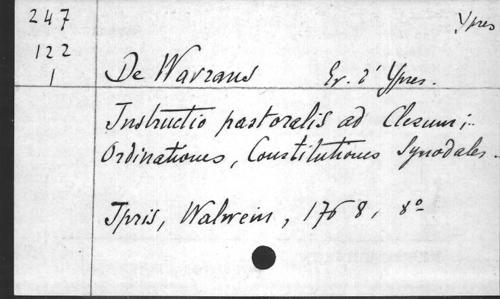 247
Ypres
122
1
De Wavrans Ev. d'Ypres.
Instructio pastoralis ad Clerum;
Ordinationes, Constitutiones Synodales.
Ipris, Walwein, 1768, 8o